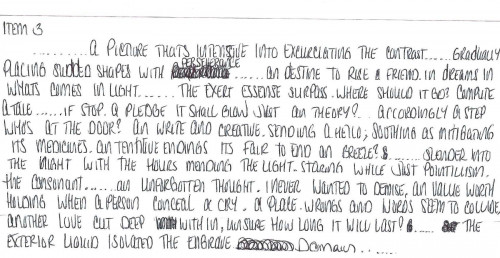 ITEM 3
.......... A PICTURE THATS INTENSIVE INTO EXCURCIATING THE CONTRAST...... GRADUALLY
PLACING SUDDED SHAPES WITH PERSEVERANCE ...... AN DESTINE TO RISE A FRIEND. IN DREAMS IN
WHATS COMES IN LIGHT...... THE EXERT ESSENSE SURPASS. WHERE SHOULD IT GO? COMPUTE
A TALE ...... IF STOP. A PLEDGE IT SHALL GLOW JUST AN THEORY?.. ACCORDINGLY A STEP
WHO'S AT THE DOOR? AN WRITE AND CREATIVE. SENDING A HELLO; SOOTHING AS MITIGATING
ITS MEDICINES. AN TENTIVE ENDINGS ITS FAIR TO END AN BREEZE? ....... SLENDER INTO
THE NIGHT WITH THE HOURS MENDING THE LIGHT. STARING WHILE JUST POINTILLISM.
THE CONSONANT...... AN UNFORGOTTEN THOUGHT. I NEVER WANTED TO DEMISE, AN VALUE WORTH
HOLDING WHEN A PERSON CONCEAL A CRY. A PLACE. WRONGS AND WORDS SEEM TO COLLIDE
ANOTHER LOVE CUT DEEP WITH IN, UNSURE HOW LONG IT WILL LAST? ...... THE
EXTERIOR LIQUID ISOLATED THE ENGRAVE DOMAIN......